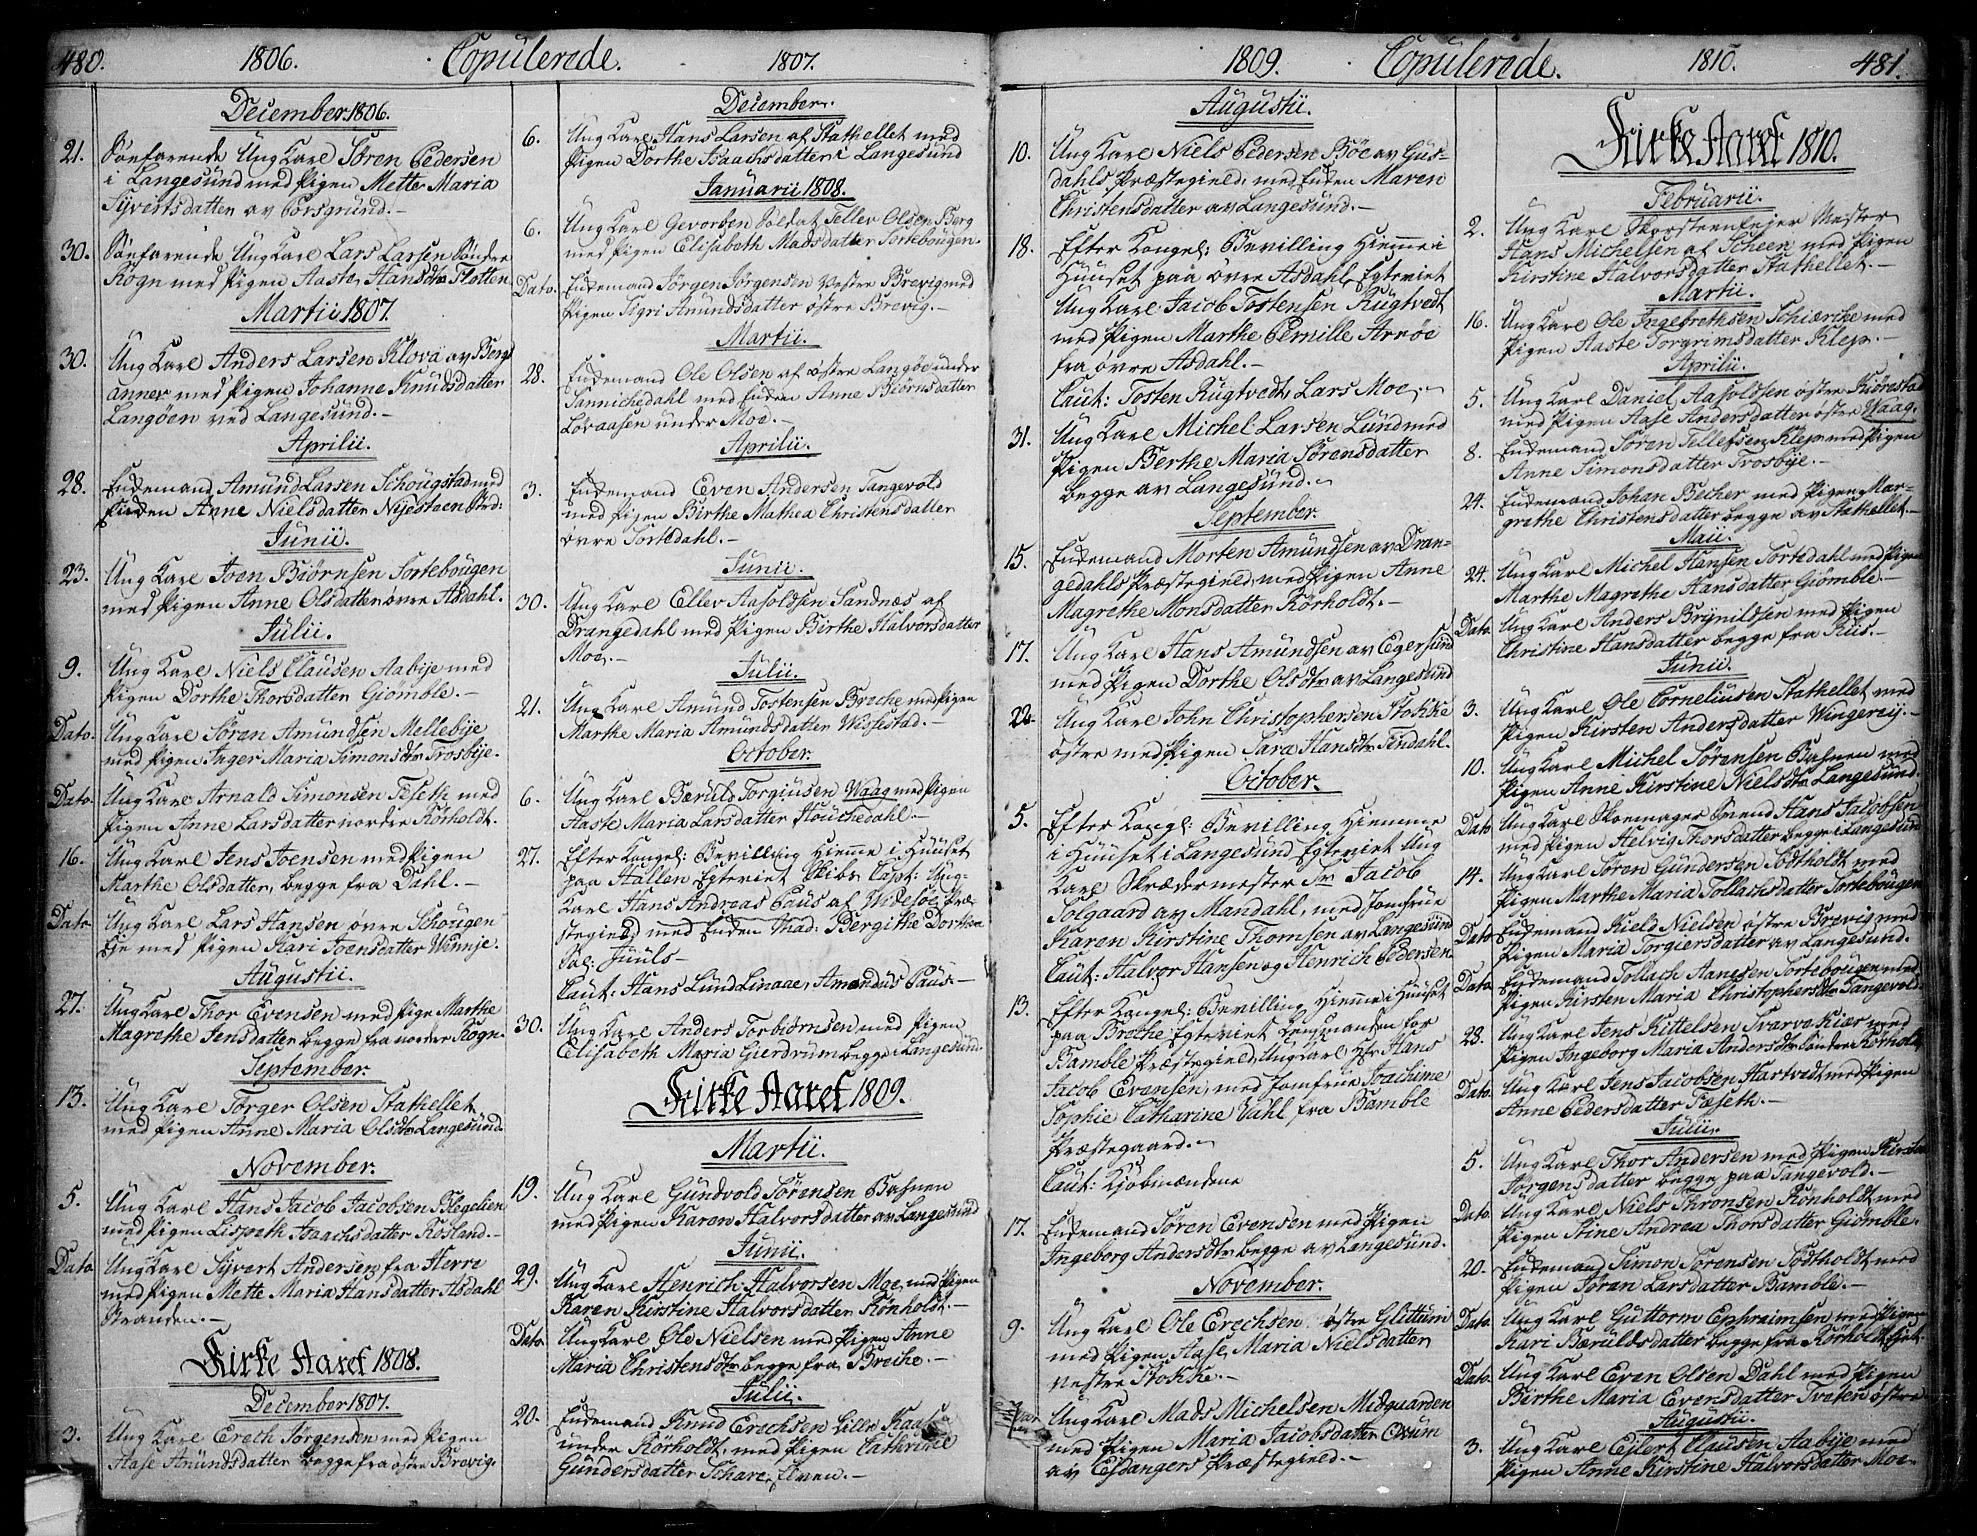 480. 1806. Copulerede. 1807.
December 1806.
21. Søefarende Ung Karl Søren Pedersen
i Langesund med Pigen Mette Maria
Syvertsdatter av Porsgrund.-
30. Søefarende Ung Karl Lars Larsen Søndre
Rogn med Pigen Aaste Hansdtr Flotten
Martii 1807.
30. Ung Karl Anders Larsen Klova av Berg-
anner med Pigen Johanne Knudsdatter
Langøen ved Langesund.-
Aprilii.
28. Enkemand Amund Larsen Schougstad med
Enken Anne Nielsdatter Nyestaen
Junii.
23. Ung Karl Joen Biørnsen Sortebougen
med Pigen Anne Olsdatter øvre Asdahl.
Julii.
9. Ung Karl Niels Clausen Aabije med
Pigen Dorthe Thorsdatter Giømble.-
Dato. Ung Karl Søren Amundsen Mellebije
med Pigen Inger Maria Simonsdtr Trosbije.
Dato. Ung Karl Arnald Simonsen Feseth med
Pigen Anne Larsdatter nordre Rørholdt.
16. Ung Karl Jens Joensen med Pigen
Marthe Olsdatter, begge fra Dahl.-
Dato. Ung Karl Lars Hansen øvre Schougen
Eje med Pigen Kari Joensdatter Winnje.
Augustii.
27. Ung Karl Thor Evensen med Pige Marthe
Magrethe Jensdatter begge fra nordre Rogn.
September.
13. Ung Karl Torger Olsen Stathellet
med Pigen Anne Maria Olsdtr Langesund.
November.
5. Ung Karl Hans Jacob Jacobsen Blegelien
med Pigen Lisbeth Isaachsdatter Rosland.-
Dato Ung Karl Syvert Andersen fra Herre
med Pigen Mette Maria Hansdatter Asdahl
Stranden.-
Kirke Aaret 1808.
December 1807.
3. Ung Karl Erech Jørgensen med Pigen
Aase Amundsdatter begge fra østre Brevig.
December.
6. Ung Karl Hans Larsen af Stathellet med
Pigen Dorthe Isaachsdatter i Langesund
Januarii 1808.
6. Ung Karl Gevorben Soldat Teller Olsen Berg
med Pigen Elisabeth Madsdatter Sortebougen.
Dato. Enkemand Jørgen Jørgensen vestre Brevig med
Pigen Sigri Amundsdatter østre Brevig.-
Martii.
28. Enkemand Ole Olsen af østre Langøe under
Sannichedahl med Enken Anne Biørnsdatter
Løvaasen under Moe.-
Aprilii.
3. Enkemand Even Andersen Tangevold
med Pigen Birthe Mathea Christensdatter
øvre Sortedahl.-
Junii.
30. Ung Karl Ellev Aasoldsen Sandnæs af
Drangedahl med Pigen Birthe Halvorsdatter
Moe.-
Julii.
21. Ung Karl Amund Tostensen Breche med Pigen
Marthe Maria Amundsdatter Wissestad.-
October.
6. Ung Karl Bærulf Torgiusen Waag med Pigen
Aaste Maria Larsdatter Flouchedahl.-
27. Efter Kongel: Bevilling Hiemme i Huuset
paa Hallen Egteviet Skibs Capt: Ung-
Karl Hans Andreas Paus af Widesøe Præ-
stegield med Enken Mad: Bergithe Dorthea
Sal: Juuls-
Caut: Hans Lund Linaae, Amandus Paus-
30. Ung Karl Anders Torbiørnsen med Pigen
Elisabeth Maria Gierdrum begge i Langesund.
Kirke Aaret 1809.
Martii.
19. Ung Karl Gundvold Sørensen Basnen
med Pigen Karen Halvorsdatter av Langesund
Junii.
29. Ung Karl Henrich Halvorsen Moe med Pigen
Karen Kirstine Halvorsdatter Rønholdt.-
Dato. Ung Karl Ole Nielsen med Pigen Anne
Maria Christensdtr begge fra Breche.-
Julii.
20. Enkemand Knud Erechsen Lille Kaasa
under Rørholdt, med Pigen Cathrine
Gundersdatter Elven.-
1809. Copulerede. 1810. 481.
Augustii.
10. Ung Karl Niels Pedersen Bøe av Gus-
dahls Præstegield, med Enken Maren
Christensdatter av Langesund.-
18. Efter Kongel: Bevilling Hiemme i
Huuset paa øvre Asdahl, Egteviet
Ung Karl Jacob Tostensen Rugtvedt
med Pigen Marthe Pernille Arrøe
fra øvre Asdahl.-
Caut: Tosten Rugtvedt, Lars Moe.
31. Ung Karl Michel Larsen Lund med
Pigen Berthe Maria Sørensdatter
begge av Langesund.
September.
15. Enkemand Morten Amundsen av Dran-
gedahls Præstegield, med Pigen Anne
Magrethe Monsdatter Rørholdt.-
17. Ung Karl Hans Amundsen av Egersund
med Pigen Dorthe Olsdtr av Langesund
22. Ung Karl John Christophersen Stokke
østre med Pigen Sara Hansdtr Findahl.
October.
5. Efter Kongl: Bevilling Hiemme
i Huuset i Langesund Egteviet Ung
Karl Skrædermester Sr Jacob
Solgaard av Mandahl, med Jomfrue
Karen Kirstine Thomsen av Langesund
Caut: Halvor Hansen og Henrich Pedersen
13. Efter Kongel: Bevilling Hiemme i Huuset
paa Brethe Egteviet Lensmanden for
Bamble Præstegield, Ungkarl Sr Hans
Jacob Evensen, med Jomfrue Joachime
Sophie Catharine Vahl fra Bamble
Præstegaard.
Caut: Kjøbmændene
17. Enkemand Søren Evensen med Pigen
Ingeborg Andersdtr begge av Langesund.
November.
9. Ung Karl Ole Erechsen østre Glittum
med Pigen Aase Maria Nielsdatter
vestre Stokke.-
Ung Karl Mads Michelsen Midguarden
med Pigen Maria Jacobsdatter Oxum
av Præstegield.-
Kirke Aaret 1810.
Februarii.
2. Ung Karl Skorsteenfejer Mester
Hans Michelsen af Scheen med Pigen
Kirstine Halvorsdatter Stathellet.-
Martii.
16. Ung Karl Ole Ingebrethsen Schiærche med
Pigen Aaste Torgrimsdatter Klep.-
Aprilii.
5. Ung Karl Daniel Aasoldsen østre Kiørestad
med Pigen Aase Andersdatter østre Waag.
8. Enkemand Søren Tellefsen Klep med Pigen
Anne Simonsdatter Trosbije.-
24. Enkemand Johan Becher med Pigen Mar-
grethe Christensdatter begge av Stathellet.-
Maii.
24. Ung Karl Michel Hansen Sortedahl med Pigen
Marthe Magrethe Hansdatter Giømble.-
Dato. Ung Karl Anders Brynildsen med Pigen
Christine Hansdatter begge fra Riis.-
Junii.
3. Ung Karl Ole Corneliusen Stathellet med
Pigen Kirsten Andersdatter Wingereij.-
10. Ung Karl Michel Sørensen Basnen med
Pigen Anne Kirstine Nielsdtr Langesund.
Dato Ung Karl Skomager Svend Hans Jacobsen
med Pigen Helvig Thorsdatter begge i Langesund
14. Ung Karl Søren Gundersen Tostholdt med
Pigen Marthe Maria Tollachsdatter Sortebougen
Dato Enkemand Kield Nielsen østre Brevig med
Pigen Maria Torgiersdatter av Langesund.
Dato. Enkemand Tollach Hansen Sortebougen med
Pigen Kirsten Maria Christophersdtr Tangevold.
28. Ung Karl Jens Kittelsen Svarve Kiær med
Pigen Ingeborg Maria Andersdtr Søndre Rørholdt
Dato. Ung Karl Jens Jacobsen Hartvedt med Pigen
Anne Pedersdatter Fæseth.-
Julii.
5. Ung Karl Thor Andersen med Pigen Kirsten
Jørgensdatter begge paa Tangevold.-
Dato. Ung Karl Niels Thronsen Rønholdt med
Pigen Stine Andrea Thorsdatter Giømble.
20. Enkemand Simon Sørensen Tostholdt med
Pigen Søran Larsdatter Bamble.-
Dato. Ung Karl Guttorm Ephraimsen med Pigen
Kari Bærulsdatter begge fra Rørholdt
Dato. Ung Karl Even Olsen Dahl med Pigen
Birthe Maria Evensdatter Tveten østre
Augustii.
3. Ung Karl Ejlert Clausen Aabije med
Pigen Anne Kirstine Halvorsdatter Moe.